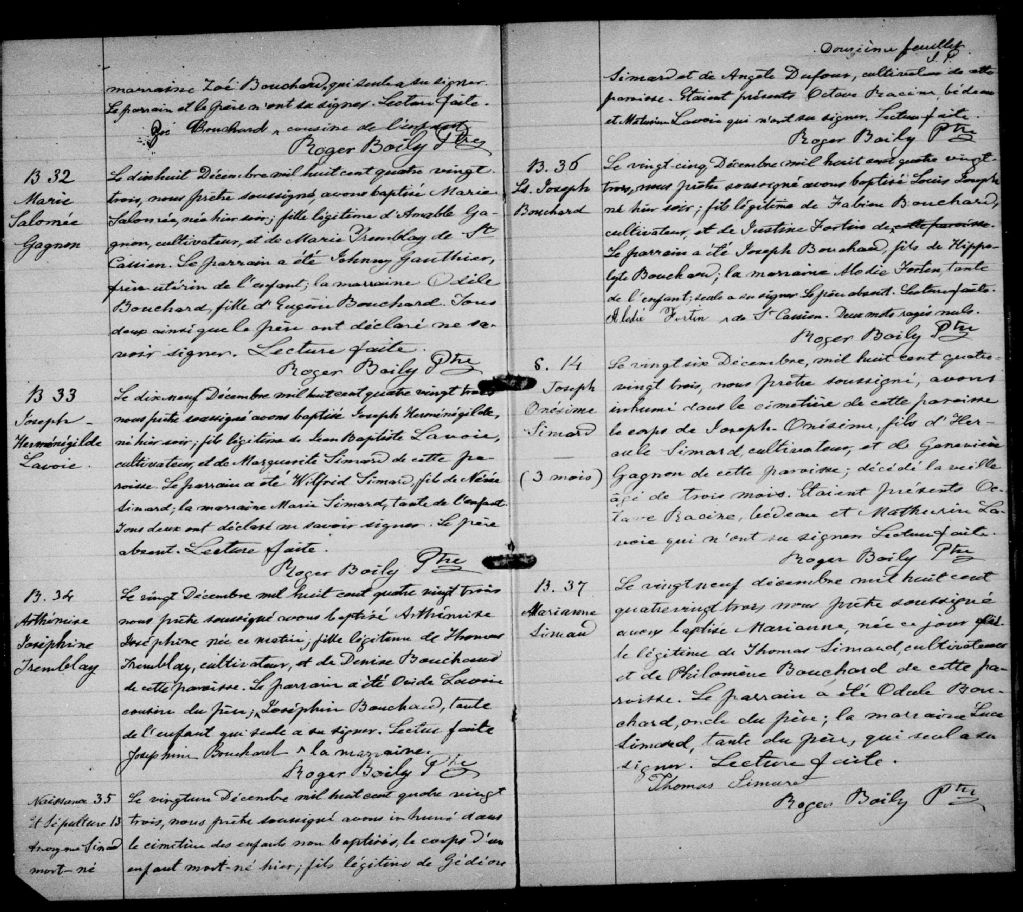 marraine Zoé Bouchard, qui seule a su signer.
Le parrain et le père n'ont su signer. Lecture faite.
Zoé Bouchard cousine de l'enfant
Roger Boily Ptre
B 32
Marie
Salomée
Gagnon
Le dixhuit Décembre mil huit cent quatre vingt
trois, nous prêtre soussigné, avons baptisé Marie
Salomée, née hier soir; fille légitime d'Amable Ga-
gnon, cultivateur, et de Marie Tremblay de St
Cassien. Le parrain a été Johnny Gauthier,
frère utérin de l'enfant; la marraine Odile
Bouchard, fille d'Eugène Bouchard. Tous
deux ainsi que le père ont déclaré ne sa-
voir signer. Lecture faite.
Roger Boily Ptre
B 33
Joseph
Herménégilde
Lavoie.
Le dixneuf Décembre mil huit cent quatre vingt trois
nous prêtre soussigné avons baptisé Joseph Herménégilde,
né hier soir; fils légitime de Jean Baptiste Lavoie,
cultivateur, et de Marguerite Simard de cette pa-
roisse. Le parrain a été Wilfrid Simard, fils de Nérée
Simard; la marraine Marie Simard, tante de l'enfant.
Tous deux ont déclaré ne savoir signer. Le père
absent. Lecture faite.
Roger Boily Ptre
B. 34
Arthémise
Joséphine
Tremblay
Le vingt Décembre mil huit cent quatre vingt trois
nous prêtre soussigné avons baptisé Arthémise
Joséphine née ce matin; fille légitime de Thomas
Tremblay, cultivateur, et de Denise Bouchard
de cette paroisse. Le parrain a été Ovide Lavoie
cousin du père; Joséphin Bouchard, tante
de l'enfant qui seule a su signer. Lectur faite
Josephine Bouchard la marraine.
Roger Boily Ptre
Naissance 35
et Sépulture 13
Anonyme Simard
mort-né
Le vingtun Décembre mil huit cent quatre vingt
trois, nous prêtre soussigné avons inhumé dans
le cimetière des enfants non baptisés, le corps d'un
enfant mort-né hier; fils légitime de Gédéon
Douzième feuillet
Simard et de Angèle Dufour, cultivateur de cette
paroisse. Etaient présents Octave Racine, bédeau
et Maturin Lavoie qui n'ont su signer. Lecture faite.
Roger Boily Ptre
B. 36
Ls. Joseph
Bouchard
Le vingt cinq Décembre mil huit cent quatre vingt
trois, nous prêtre soussigné avons baptisé Louis Joseph
né hier soir; fils légitime de Fabien Bouchard,
cultivateur, et de Justine Fortin de cette paroisse.
Le parrain a été Joseph Bouchard, fils de Hippo-
lyte Bouchard; la marraine Alodie Fortin, tante
de l'enfant, seule a su signer. Le père absent. Lecture faite.
Alodie Fortin de St Cassien. Deux mots rayés nuls.
Roger Boily Ptre
S. 14
Joseph
Onésime
Simard
(3 mois)
Le vingt six Décembre, mil huit cent quatre-
vingt trois, nous prêtre soussigné, avons
inhumé dans le cimetière de cette paroisse
le corps de Joseph-Onisime, fils d'Her-
cule Simard, cultivateur, et de Geneviève
Gagnon de cette paroisse; décédé la veille
âgé de trois mois. Etaient présents Oc-
tave Racine, bédeau et Mathurin La-
voie qui n'ont su signer. Lecture faite.
Roger Boily Ptre
B. 37
Marianne
Simard
Le vingt neuf décembre mil huit cent
quatre vingt trois, nous prêtre soussigné
avons baptisé Marianne, née ce jour fil-
le légitime de Thomas Simard, cultivateur
et de Philomène Bouchard de cette pa-
roisse. Le parrain a été Odule Bou-
chard, oncle du père; la marraine Luce
Simard, tante du père, qui seul a su
signer. Lecture faite.
Thomas Simard
Roger Boily Ptre